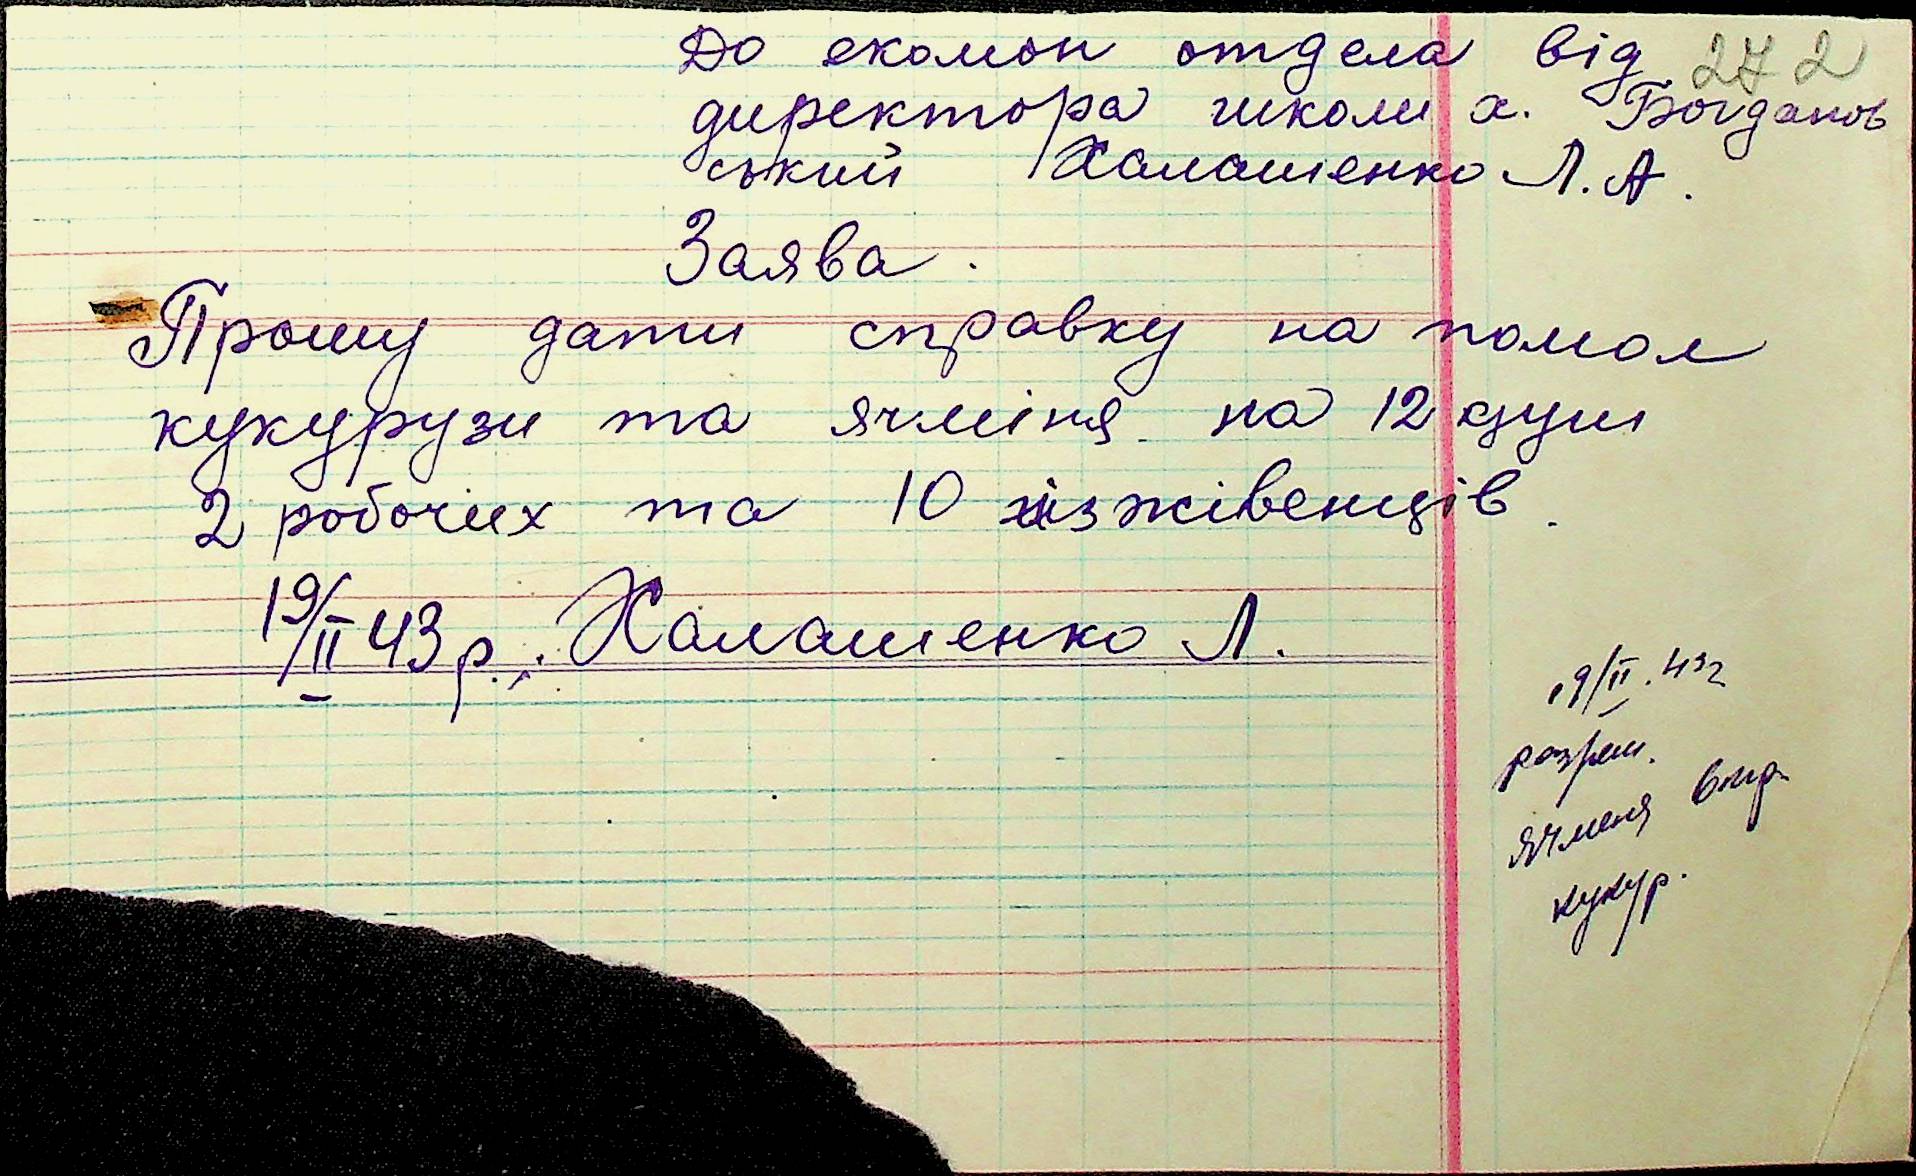 До економ отдела від 272
директора школи х. Богданов
ський Халашенко Л. А.
Заява.
Прошу дати справку на помол
кукурузи та ячміня на 12 душ
2 робочих та 10 іжівенців.
19/II 43 р. Халашенко Л.
19/II. 43 г
разреш.
ячменя
кукур.